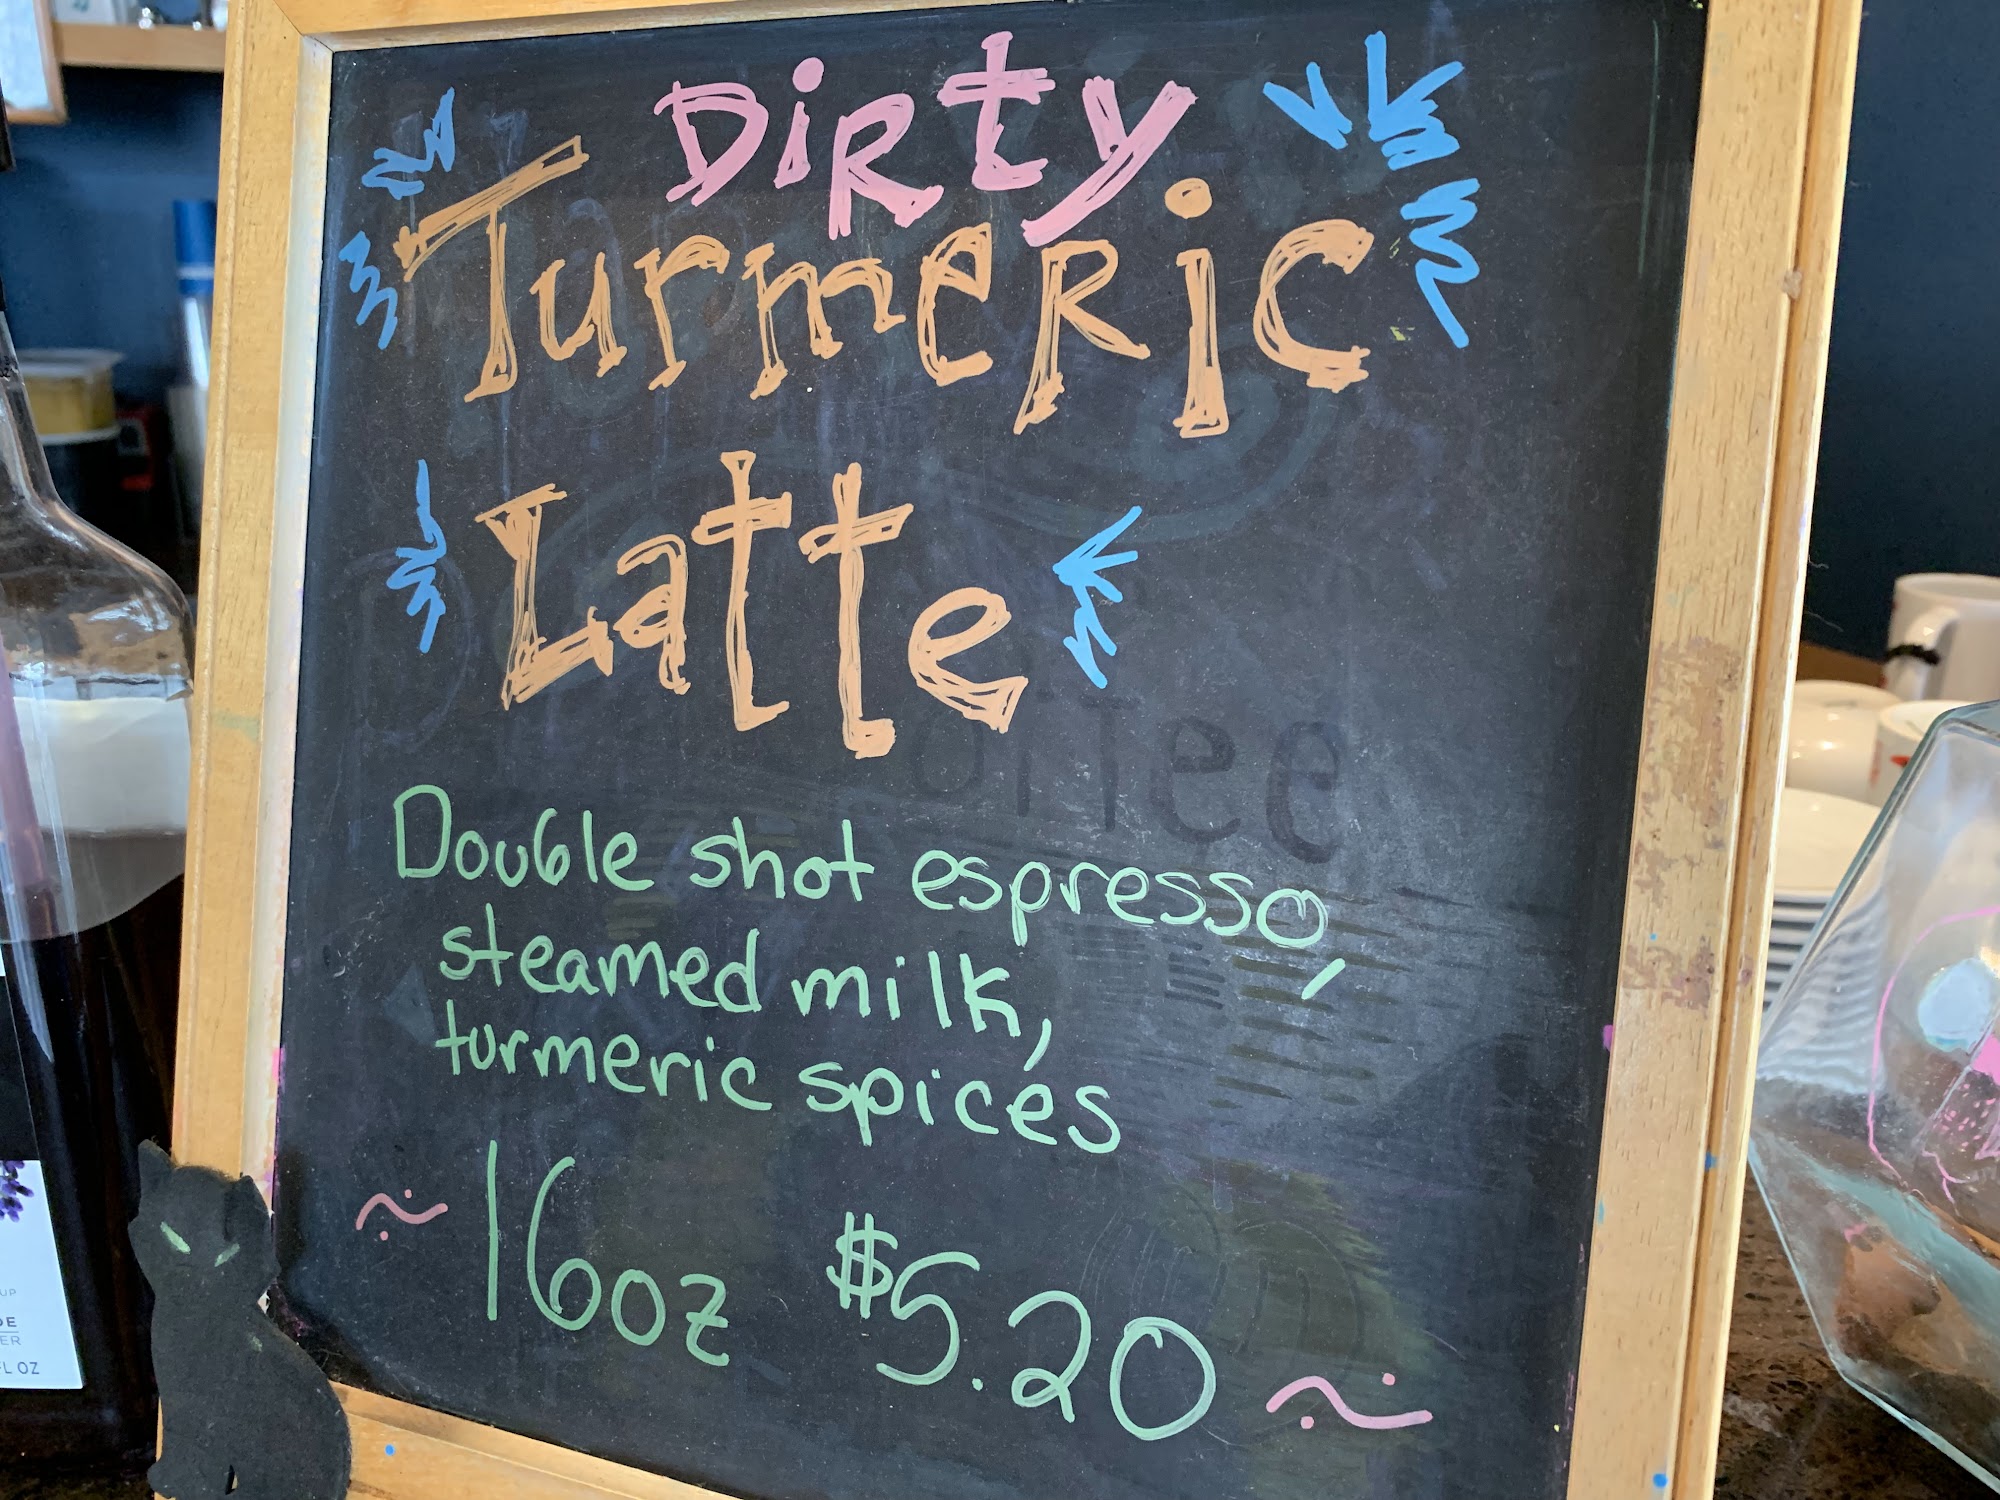 Dirty
Turmeric
Latte
offee
Double shot espresso,
steamed milk,
turmeric spices
~ 16oz $5.20 ~
UP
DE
ER
FL OZ